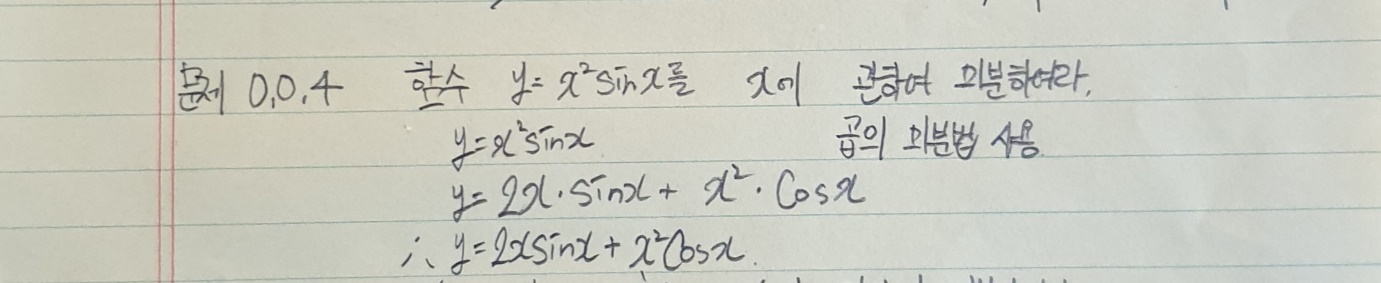 문제 0.0.4 함수 y= x²sinx를 x에 관하여 미분하여라.
y=x²sinx 곱의 미분법 사용
y= 2x·sinx + x²·Cosx
∴ y=2xsinx + x²Cosx.